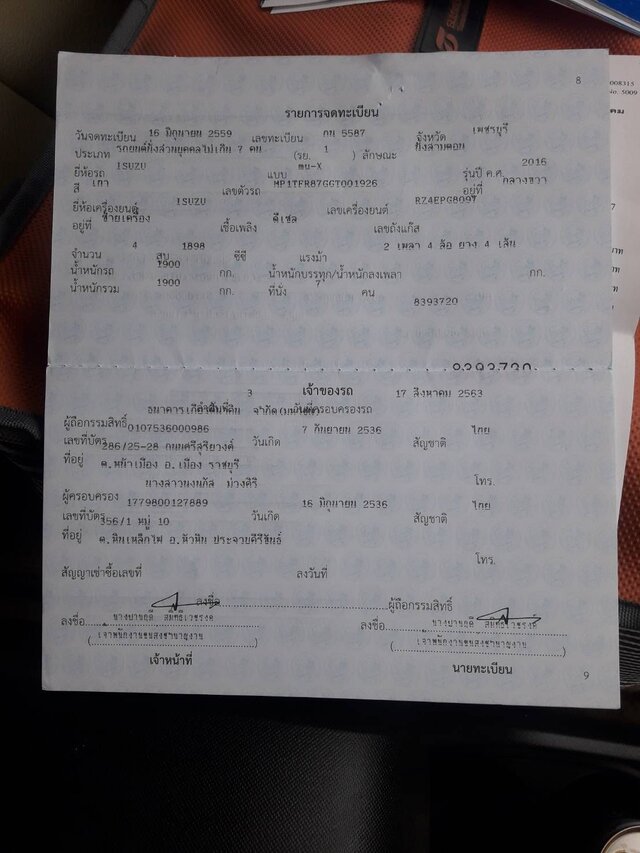 8
รายการจดทะเบียน
วันจดทะเบียน 16 มิถุนายน 2559 เลขทะเบียน กน 5587 จังหวัด เพชรบุรี
ประเภท รถยนต์นั่งส่วนบุคคลไม่เกิน 7 คน (รย. 1 ) ลักษณะ นั่งสามตอน
ยี่ห้อรถ ISUZU แบบ mu-X รุ่นปี ค.ศ. 2016
สี เทา เลขตัวรถ MP1TFR87GGT001926 อยู่ที่ กลางขวา
ยี่ห้อเครื่องยนต์ ISUZU เลขเครื่องยนต์ RZ4EPG8097
อยู่ที่ ซ้ายเครื่อง เชื้อเพลิง ดีเซล เลขถังแก๊ส
จำนวน 4 สูบ 1898 ซีซี แรงม้า 2 เพลา 4 ล้อ ยาง 4 เส้น
น้ำหนักรถ 1900 กก. น้ำหนักบรรทุก/น้ำหนักลงเพลา กก.
น้ำหนักรวม 1900 กก. ที่นั่ง 7 คน
8393720
8393720
เจ้าของรถ
3 17 สิงหาคม 2563
ลำดับที่ วันที่ครอบครองรถ
ธนาคารเกียรตินาคิน จำกัด
ผู้ถือกรรมสิทธิ์
เลขที่บัตร 0107536000986 วันเกิด 7 กันยายน 2536 สัญชาติ ไทย
ที่อยู่ 286/25-28 ถนนศรีสุริยวงศ์
ต.หน้าเมือง อ.เมือง ราชบุรี โทร.
ผู้ครอบครอง นางสาวนงนภัส ม่วงศิริ
เลขที่บัตร 1779800127889 วันเกิด 16 มิถุนายน 2536 สัญชาติ ไทย
ที่อยู่ 356/1 หมู่ 10
ต.หินเหล็กไฟ อ.หัวหิน ประจวบคีรีขันธ์ โทร.
สัญญาเช่าซื้อเลขที่ ลงวันที่
ลงชื่อ ผู้ถือกรรมสิทธิ์
ลงชื่อ ลงชื่อ
(เจ้าพนักงานขนส่งชำนาญงาน) (เจ้าพนักงานขนส่งชำนาญงาน)
เจ้าหน้าที่ นายทะเบียน
9
008315
No. 5009